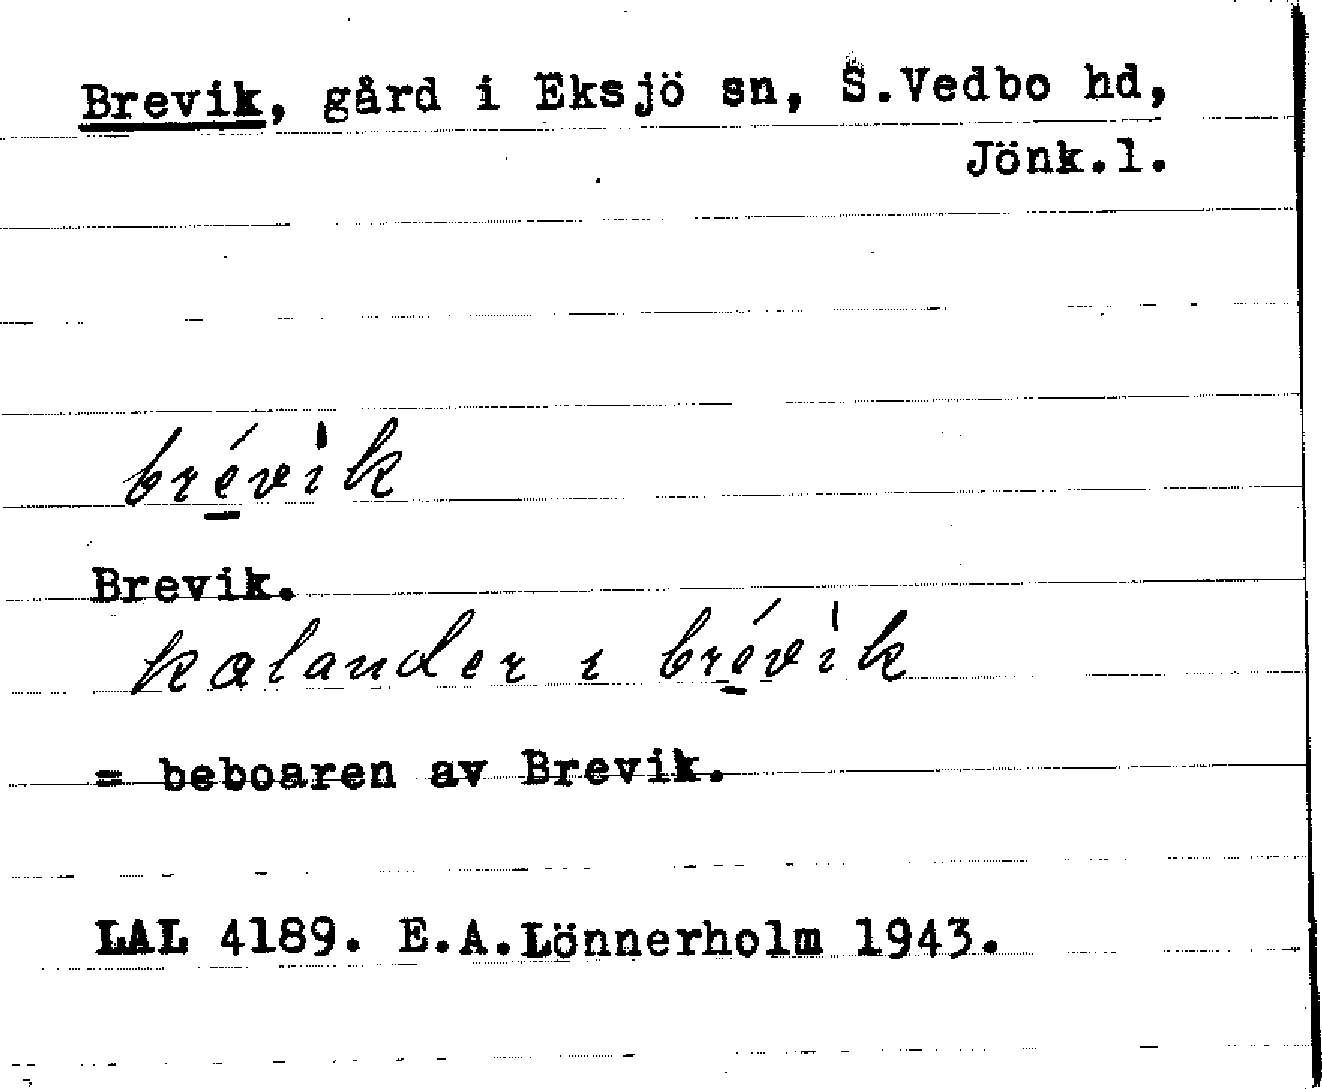 Brevik, gård i Eksjö sn, S.Vedbo hd,
Jönk.l.
brévik
Brevik.
kalander i brévik
= beboaren av Brevik.
LAL 4189. E.A.Lönnerholm 1943.